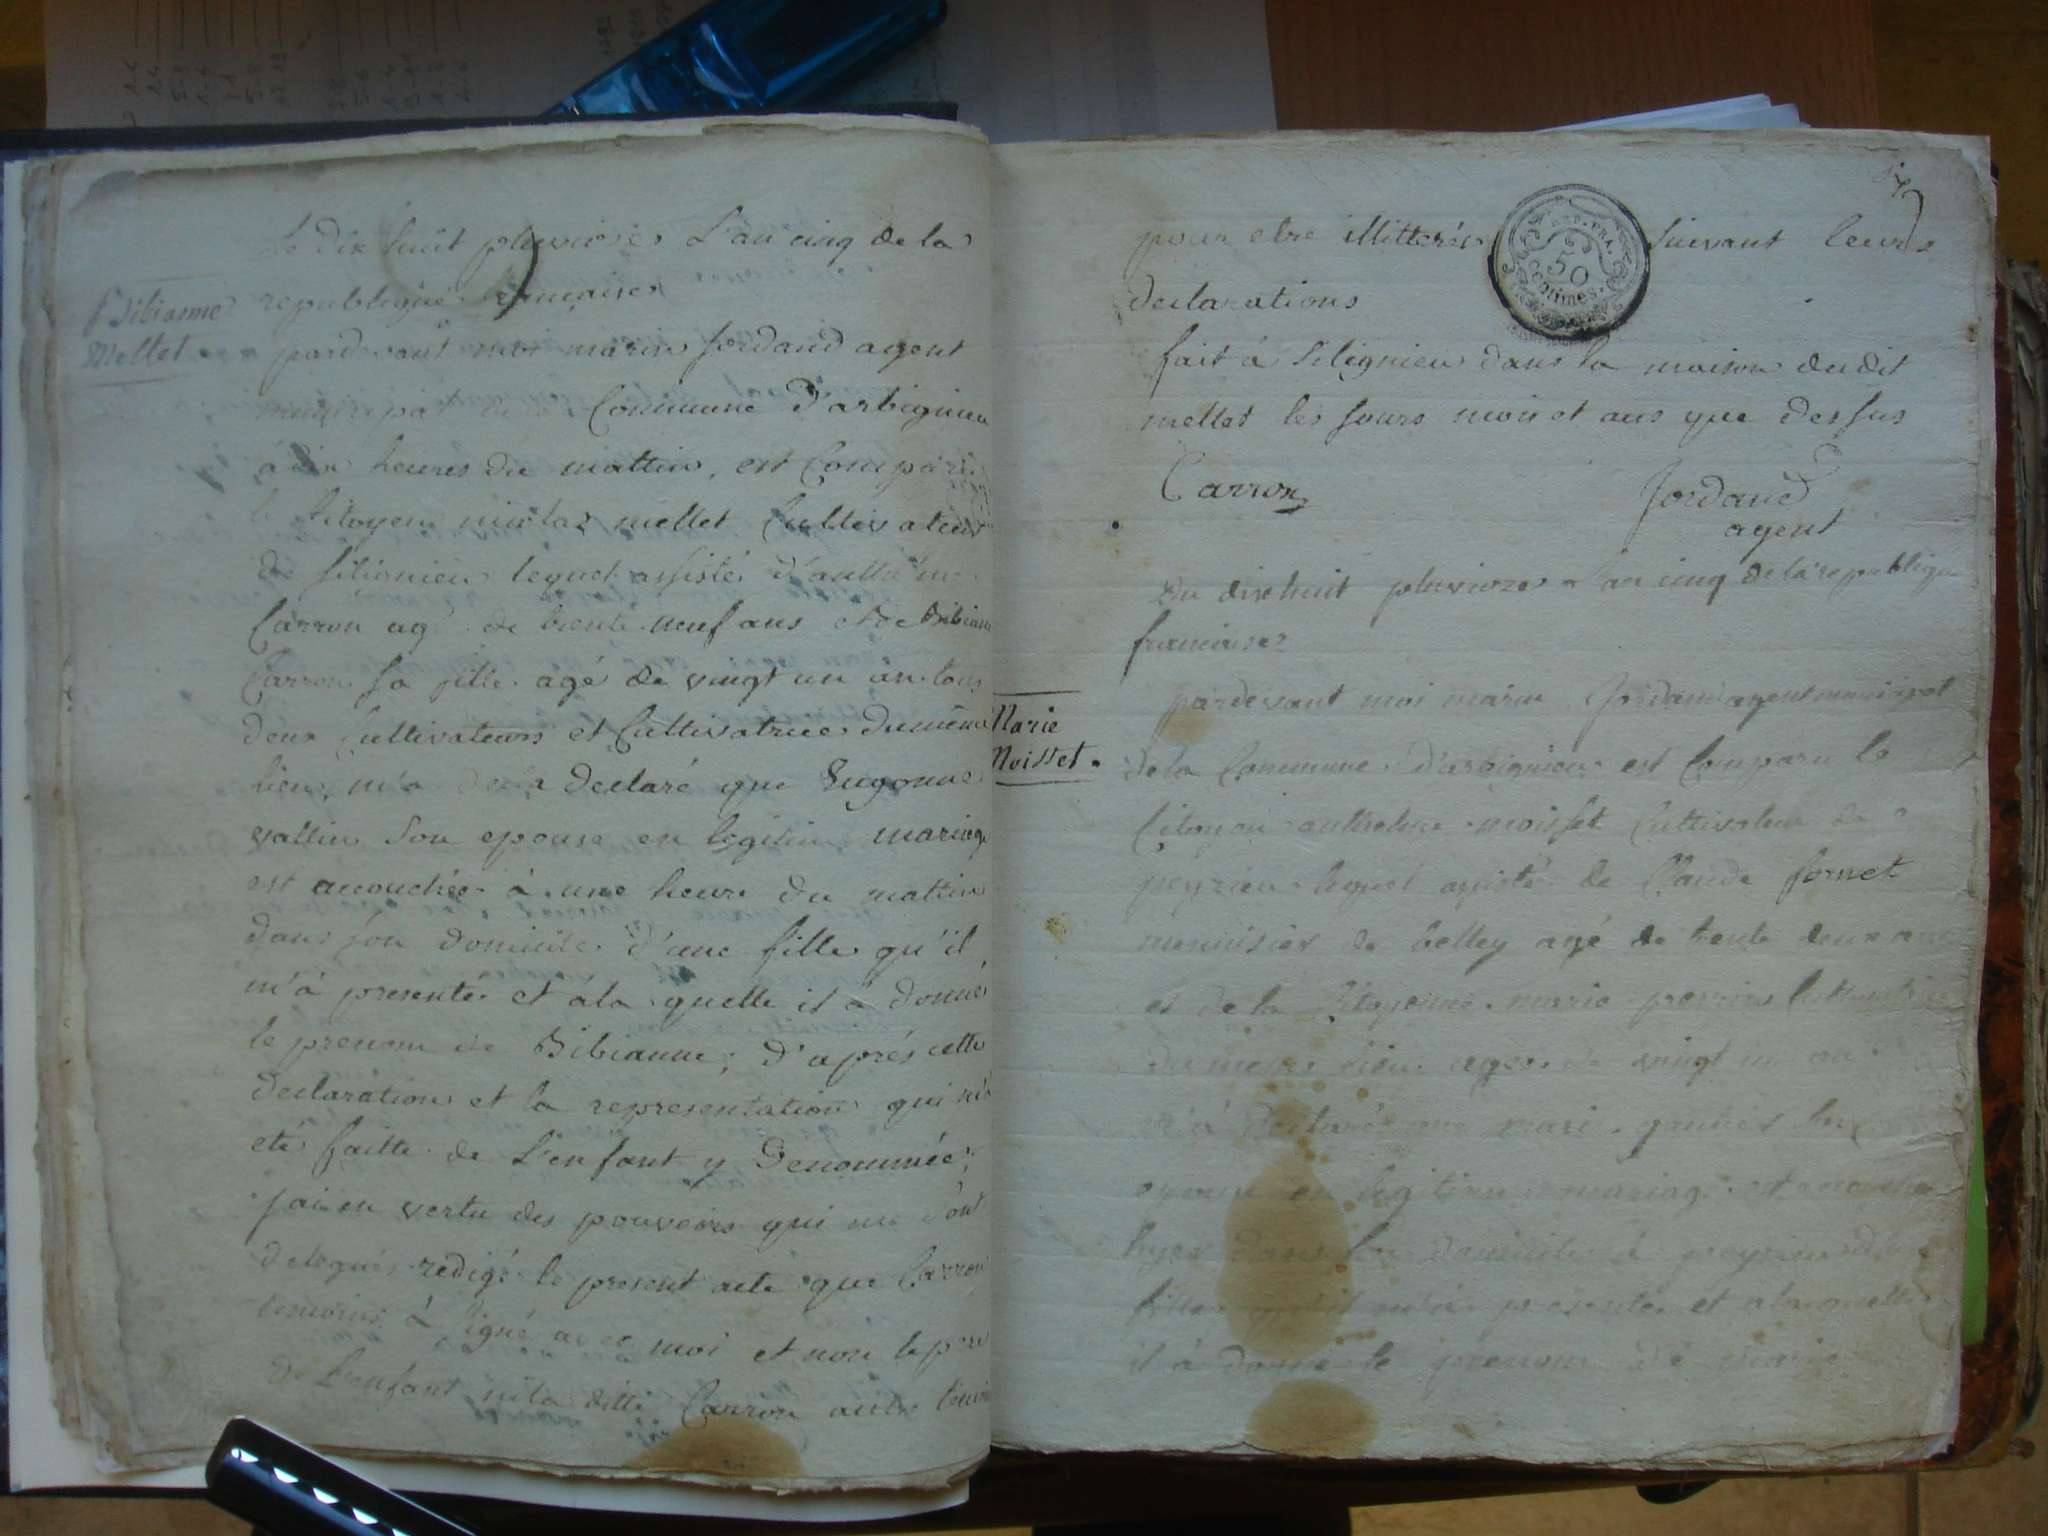 Le dix huit pluviose L'an cinq de la
Bibianne
Mellet
republique francaise
pardevant moi marin Jordand agent
municipal de la Commune D'arbignieu
à dix heures du mattin, est Comparu
le Citoyen nicolas mellet Cultivateur
de silignieu lequel assisté d'anthelme
Carron agé de trente neuf ans et de Bibianne
Carron sa fille agé de vingt un an tous
deux Cultivateurs et Cultivatrice du même
lieu, m'a declaré que
vallin Son epouse en legitime mariage
est accouchée à une heure du mattin
dans son domicile d'une fille qu'il
m'à presenté et à la quelle il à donné
le prenom de Bibianne; D'aprés cette
declaration et la representation qui m'à
eté faitte de L'enfant y denommée;
jai en vertu des pouvoirs qui me sont
delegués redigé le present acte que Carron
temoins à signé avec moi et non le pere
de L'enfant ni la ditte Carron autre temoin
pour etre illitterés suivant leurs
declarations
REP. FRA.
50
centimes.
fait à Silignieu dans la maison dudit
mellet les jours mois et ans que dessus
Carron
Jordand
agent
Du dixhuit pluvioze l'an cinq de la republique
francaise
Marie
Moisset.
pardevant moi marin Jordand agent municipal
de la Commune D'arbignieu est Comparu le
Citoyen anthelme moisset Cultivateur de
peyzieu lequel assisté de Claude fornet
menuisier de belley agé de trente deux ans
et de la Citoyenne marie perrin
du meme lieu agée de vingt un an
m'à declaré que marie
epouse en legitime mariage est accouchée
hyer dans son domicile à peyzieu d'une
fille qu'il m'à presentée et à laquelle
il à donné le prenom de marie